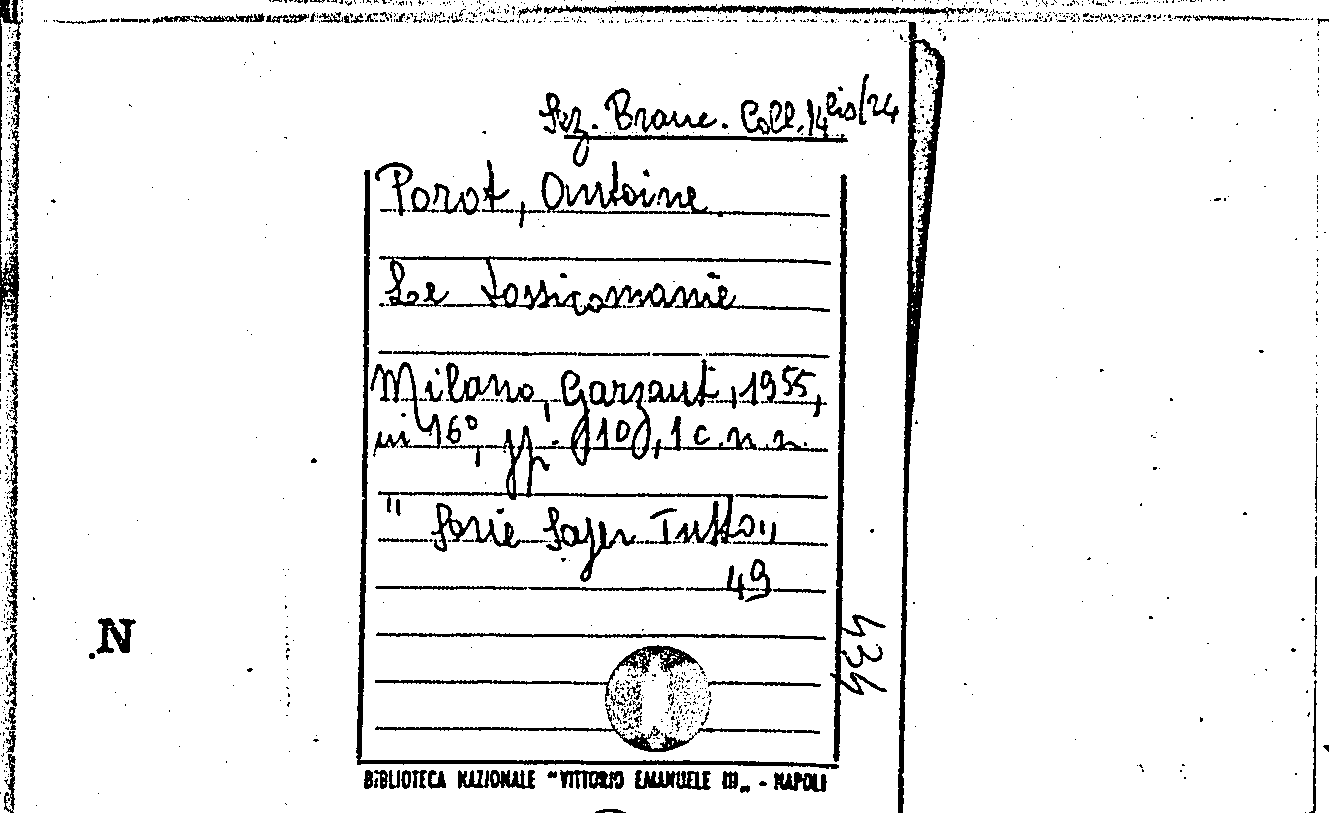 Sez. Branc. Coll. 14 bis/24
Porot, Antoine
Le tossicomanie
Milano, Garzanti, 1955,
in 16°, pp. 110, 1 c. n. n.
" Serie Saper Tutto „
49
434
N
BIBLIOTECA NAZIONALE "VITTORIO EMANUELE III„ - NAPOLI